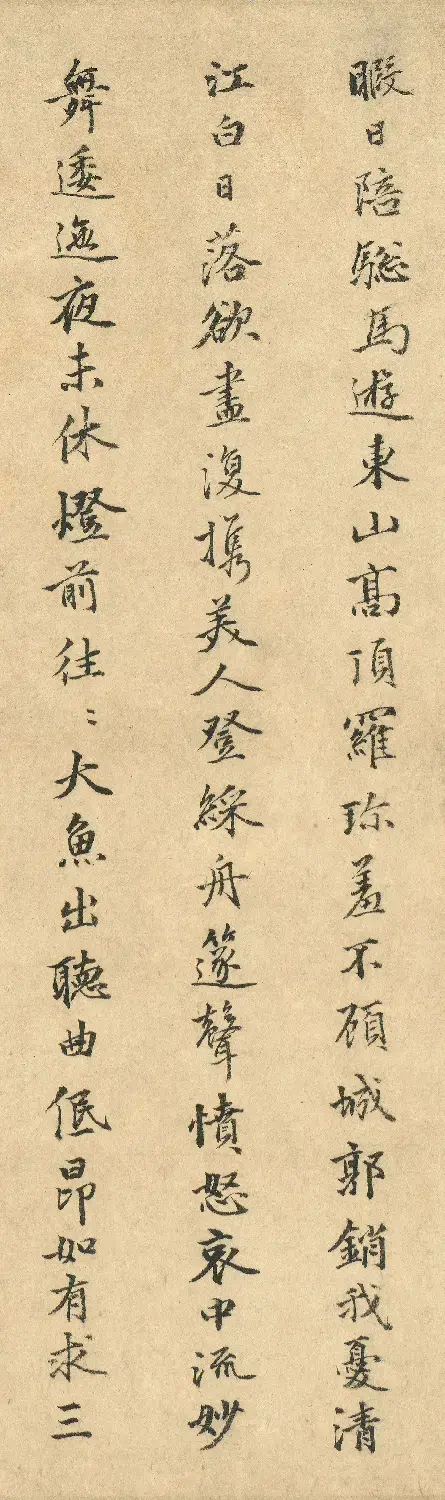 暇日陪驄馬遊東山高頂羅珎羞不顧城郭銷我憂清
江白日落欲盡復攜美人登綵舟篴聲憤怒哀中流妙
舞逶迤夜未休燈前往〻大魚出聽曲低昂如有求三